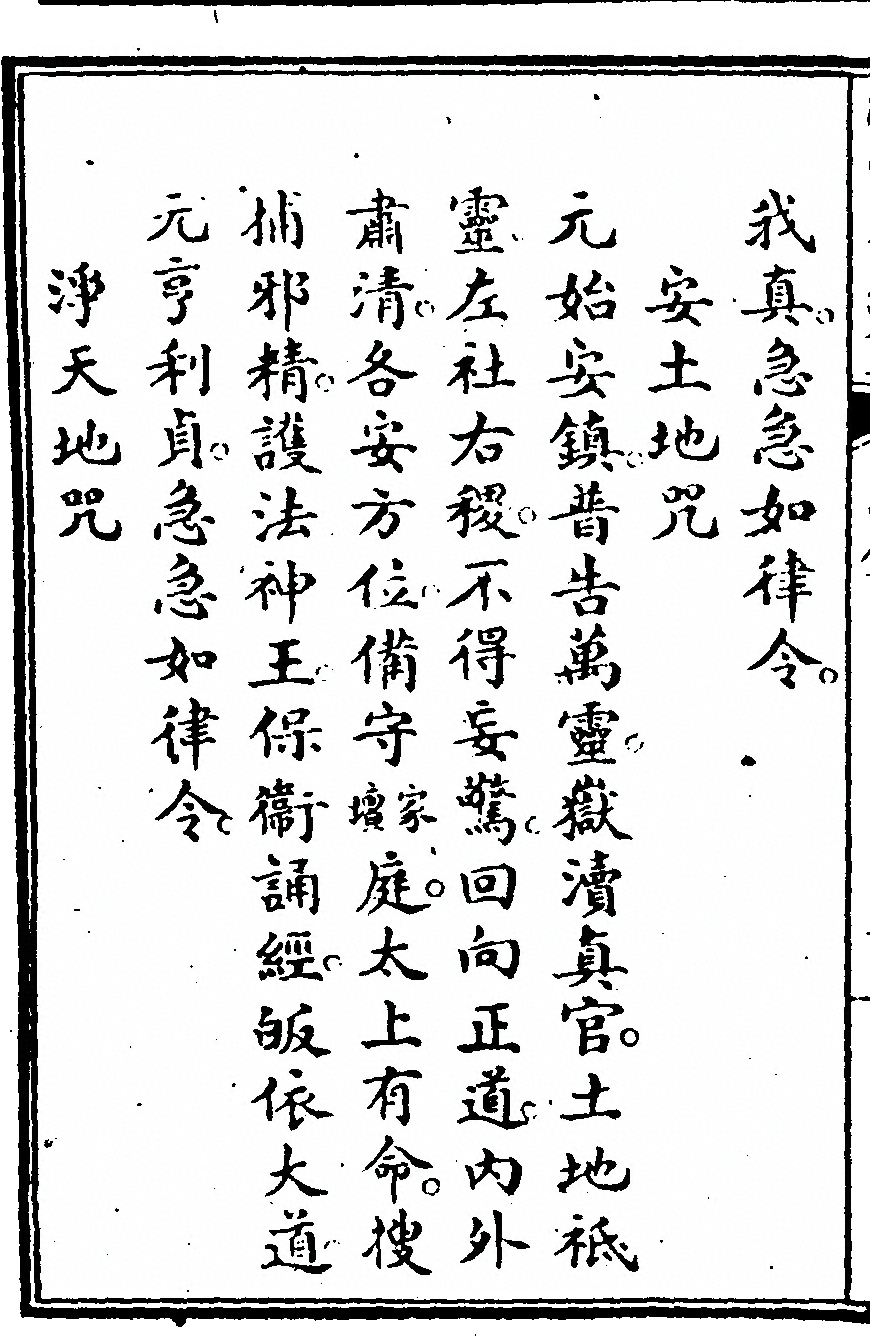 我真。急急如律令。
安土地咒
元始安鎮。普告萬靈。嶽瀆真官。土地祗
靈。左社右稷。不得妄驚。回向正道。內外
肅清。各安方位。備守家壇庭。太上有命。搜
捕邪精。護法神王。保衛誦經。皈依大道。
元亨利貞。急急如律令。
淨天地咒